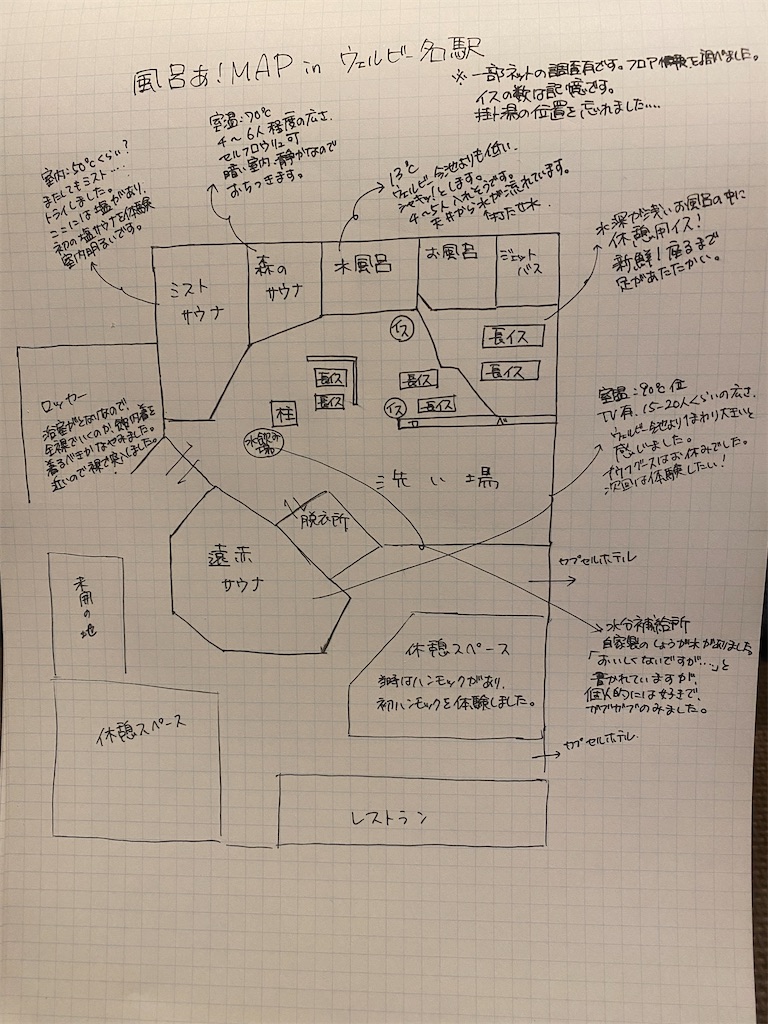 風呂あ!MAP in ウェルビー名駅
※一部ネットの調査有です。フロア情報を調べました。
イスの数は記憶です。
掛け湯の位置を忘れました....
室内:50℃くらい?
またしてもミスト....
トライしました。
ここには塩があり、
初の塩サウナを体験
室内明るいです。
室温:70℃
4〜6人程度の広さ.
セルフロウリュ可
暗い室内.静かなので
おちつきます。
13℃
ウェルビー今池よりも低い.
シャキッ!とします。
4〜5人入れそうです。
天井から水が流れています。
打たせ水.
水深が浅いお風呂の中に
休憩用イス!
新鮮!座るまで
足があたたかい。
ミスト
サウナ
森の
サウナ
水風呂
お風呂
ジェット
バス
イス
長イス
長イス
長イス
長イス
長イス
イス
長イス
柱
水飲み
場
ロッカー
浴室がとなりなので、
全裸でいくのか、館内着を
着るべきかなやみました。
近いので裸で突入しました!
室温:90℃位
TV有.15-20人くらいの広さ.
ウェルビー今池よりひとまわり大きいと
感じました。
アウフグースはお休みでした。
次回は体験したい!
洗い場
脱衣所
遠赤
サウナ
カプセルホテル
未開の地
休憩スペース
ハンモックがあり、
初ハンモックを体験しました。
水分補給所
自家製のしょうが水がありました
「おいしくないですが…」と
書かれていますが、
個人的には好きで、
ガブガブのみました。
休憩スペース
カプセルホテル
レストラン